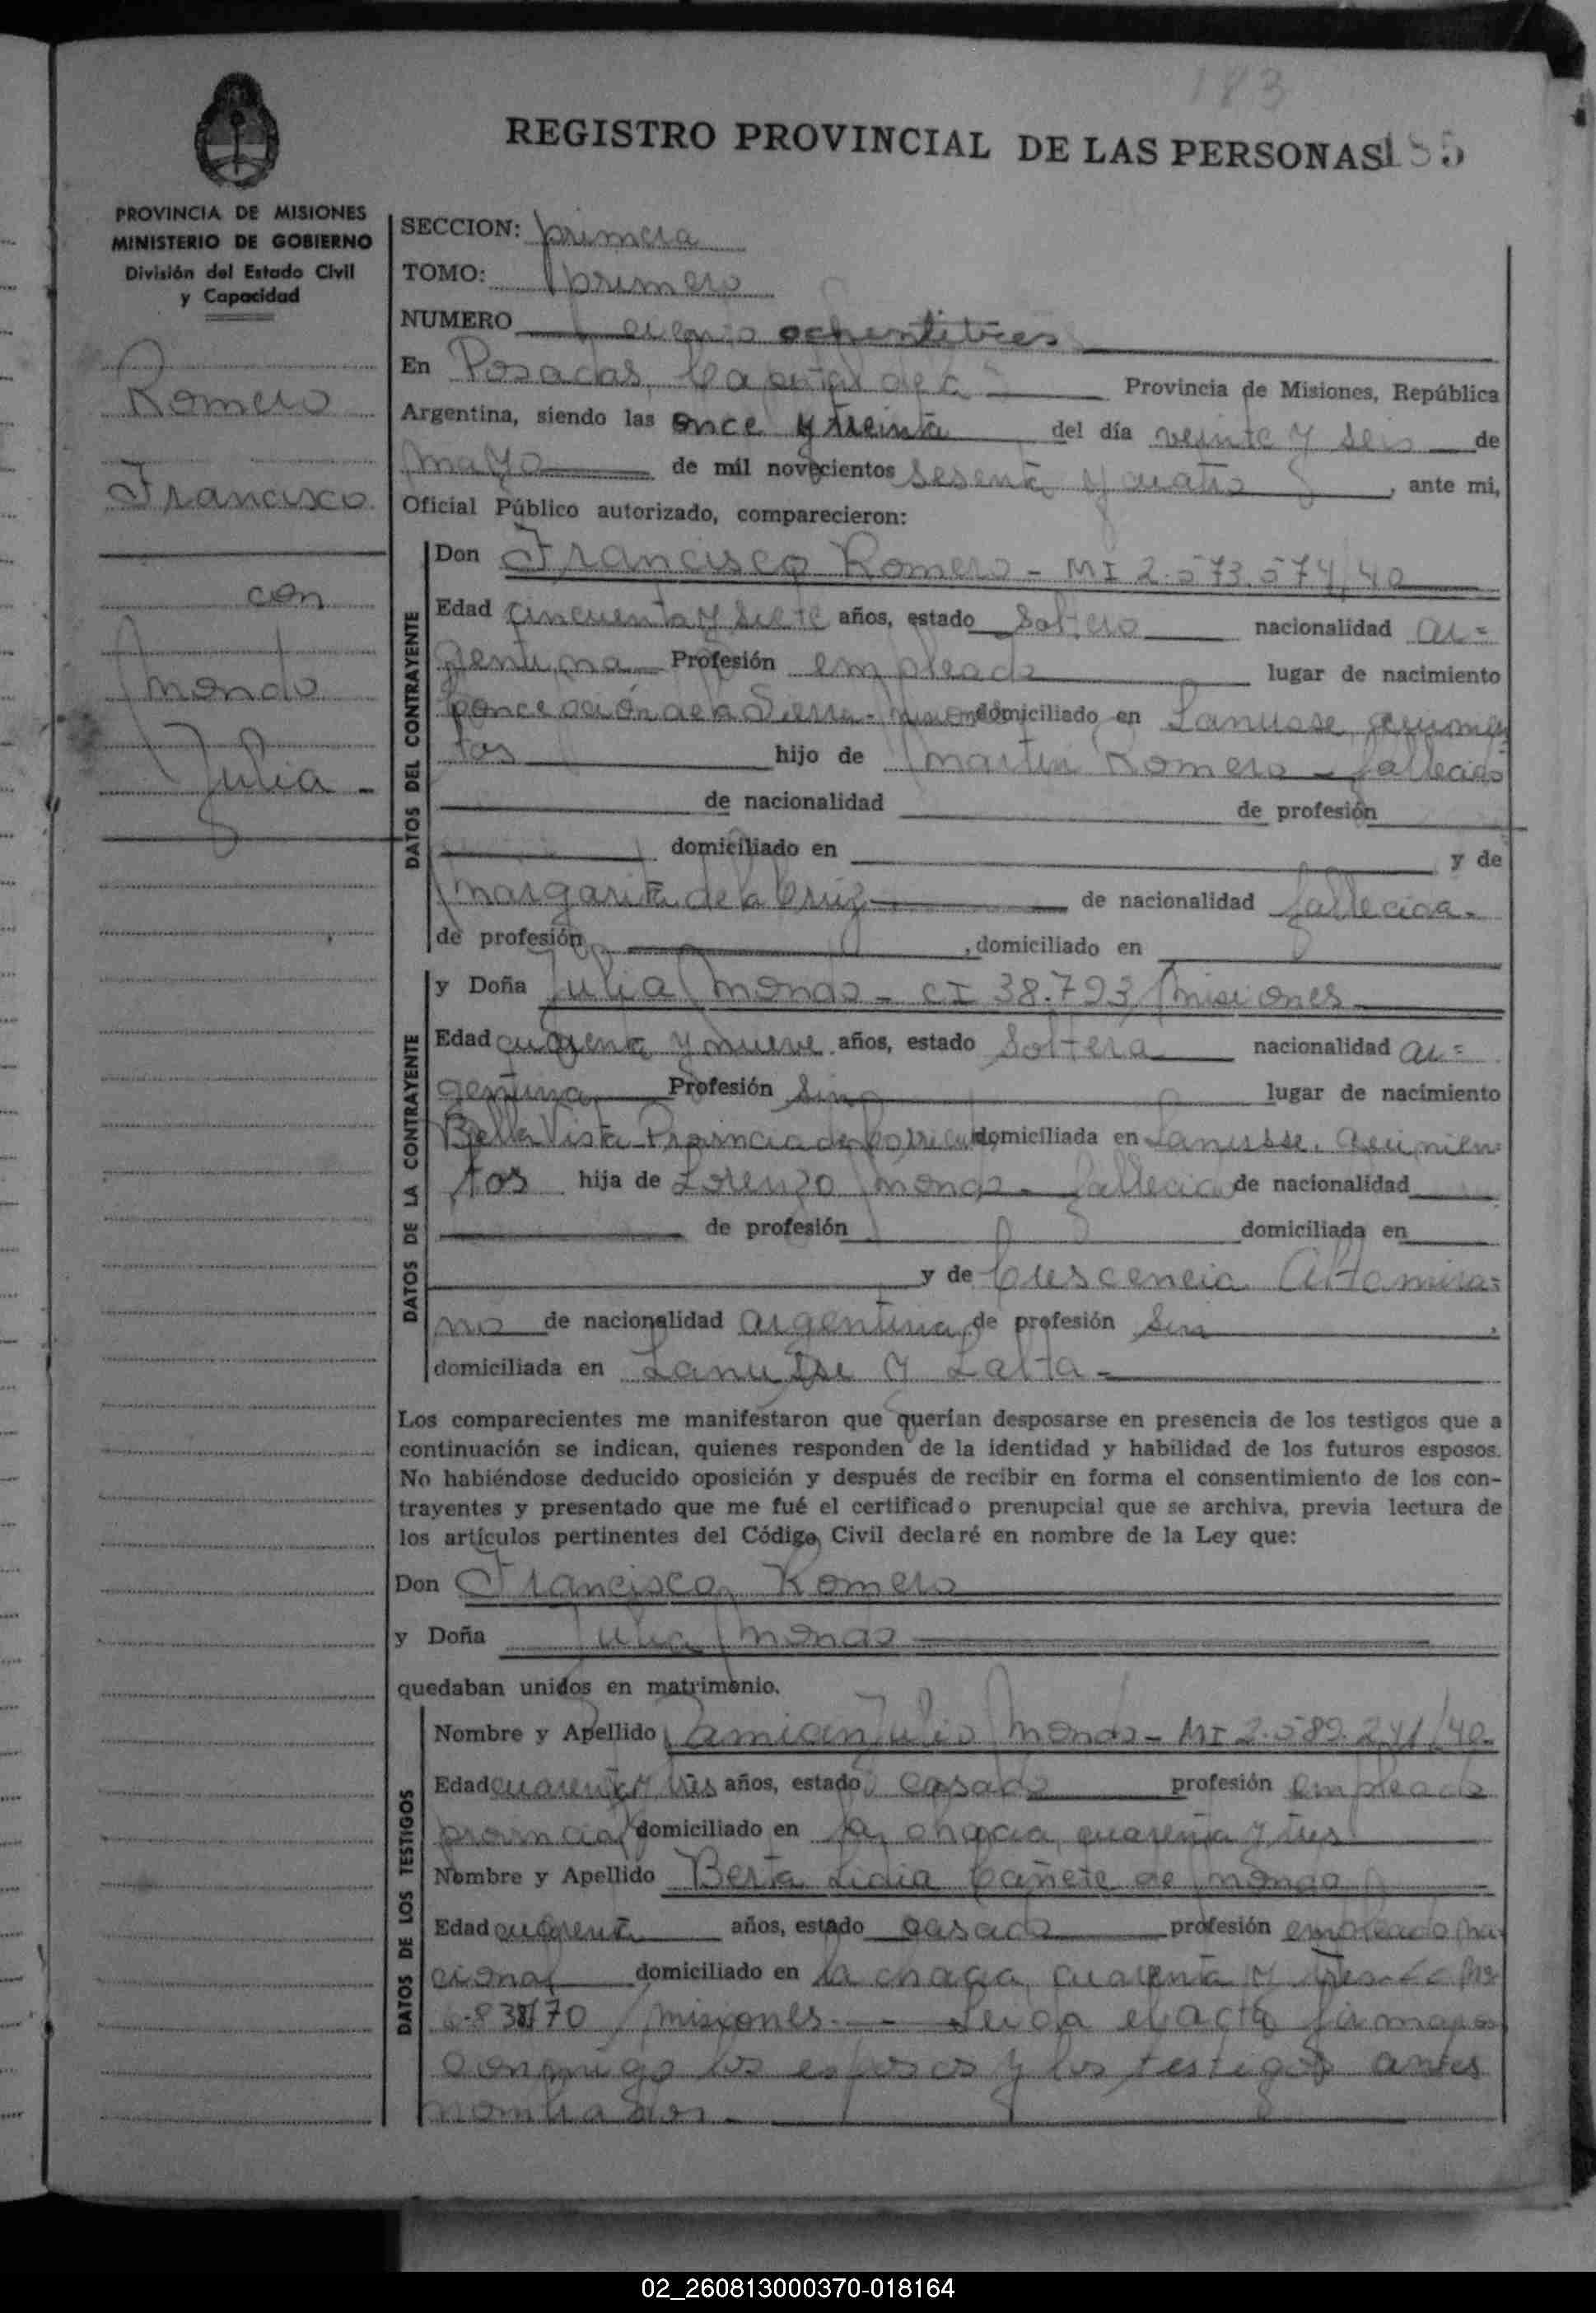 183
REGISTRO PROVINCIAL DE LAS PERSONAS 185
PROVINCIA DE MISIONES
MINISTERIO DE GOBIERNO
División del Estado Civil
y Capacidad
Romero
Francisco
con
Mondo
Julia -
SECCION: primera
TOMO: primero
NUMERO ciento ochentitres
En Posadas, Capital de la Provincia de Misiones, República
Argentina, siendo las once y treinta del día veinte y seis de
mayo de mil novecientos sesenta y cuatro, ante mi,
Oficial Público autorizado, comparecieron:
DATOS DEL CONTRAYENTE
Don Francisco Romero - MI 2.573.574/40
Edad cincuenta y siete años, estado soltero nacionalidad ar=
gentina Profesión empleado lugar de nacimiento
Concepción de la Sierra - Misiones domiciliado en Lanusse, quimen
tos hijo de Martin Romero - fallecido
de nacionalidad de profesión
domiciliado en y de
Margarita de la Cruz de nacionalidad fallecida.
de profesión , domiciliado en
DATOS DE LA CONTRAYENTE
y Doña Julia Mondo - CI 38.793/Misiones
Edad cuarenta y nueve años, estado soltera nacionalidad ar=
gentina Profesión Sin lugar de nacimiento
Bella Vista Provincia de domiciliada en Lanusse,
tos hija de Lorenzo Mondo - fallecido de nacionalidad
de profesión domiciliada en
y de Crescencia Altamira=
no de nacionalidad argentina, de profesión Sin ,
domiciliada en Lanusse y Salta -
Los comparecientes me manifestaron que querían desposarse en presencia de los testigos que a
continuación se indican, quienes responden de la identidad y habilidad de los futuros esposos.
No habiéndose deducido oposición y después de recibir en forma el consentimiento de los con-
trayentes y presentado que me fué el certificado prenupcial que se archiva, previa lectura de
los artículos pertinentes del Código Civil declaré en nombre de la Ley que:
Don Francisco Romero
y Doña Julia Mondo
quedaban unidos en matrimonio.
DATOS DE LOS TESTIGOS
Nombre y Apellido Damian Julio Mondo - MI 2.589.241/40-
Edad cuarenta y tres años, estado casado profesión empleado
provincial domiciliado en la chacra cuarenta y tres
Nombre y Apellido Berta Lidia Cañete de Mondo
Edad cuarenta años, estado casada profesión empleado na
cional domiciliado en la chacra cuarenta y tres
6.838/70 /Misiones. — Leida el acta firmaron
conmigo los esposos y los testigos antes
nombrados. -
02_260813000370-018164